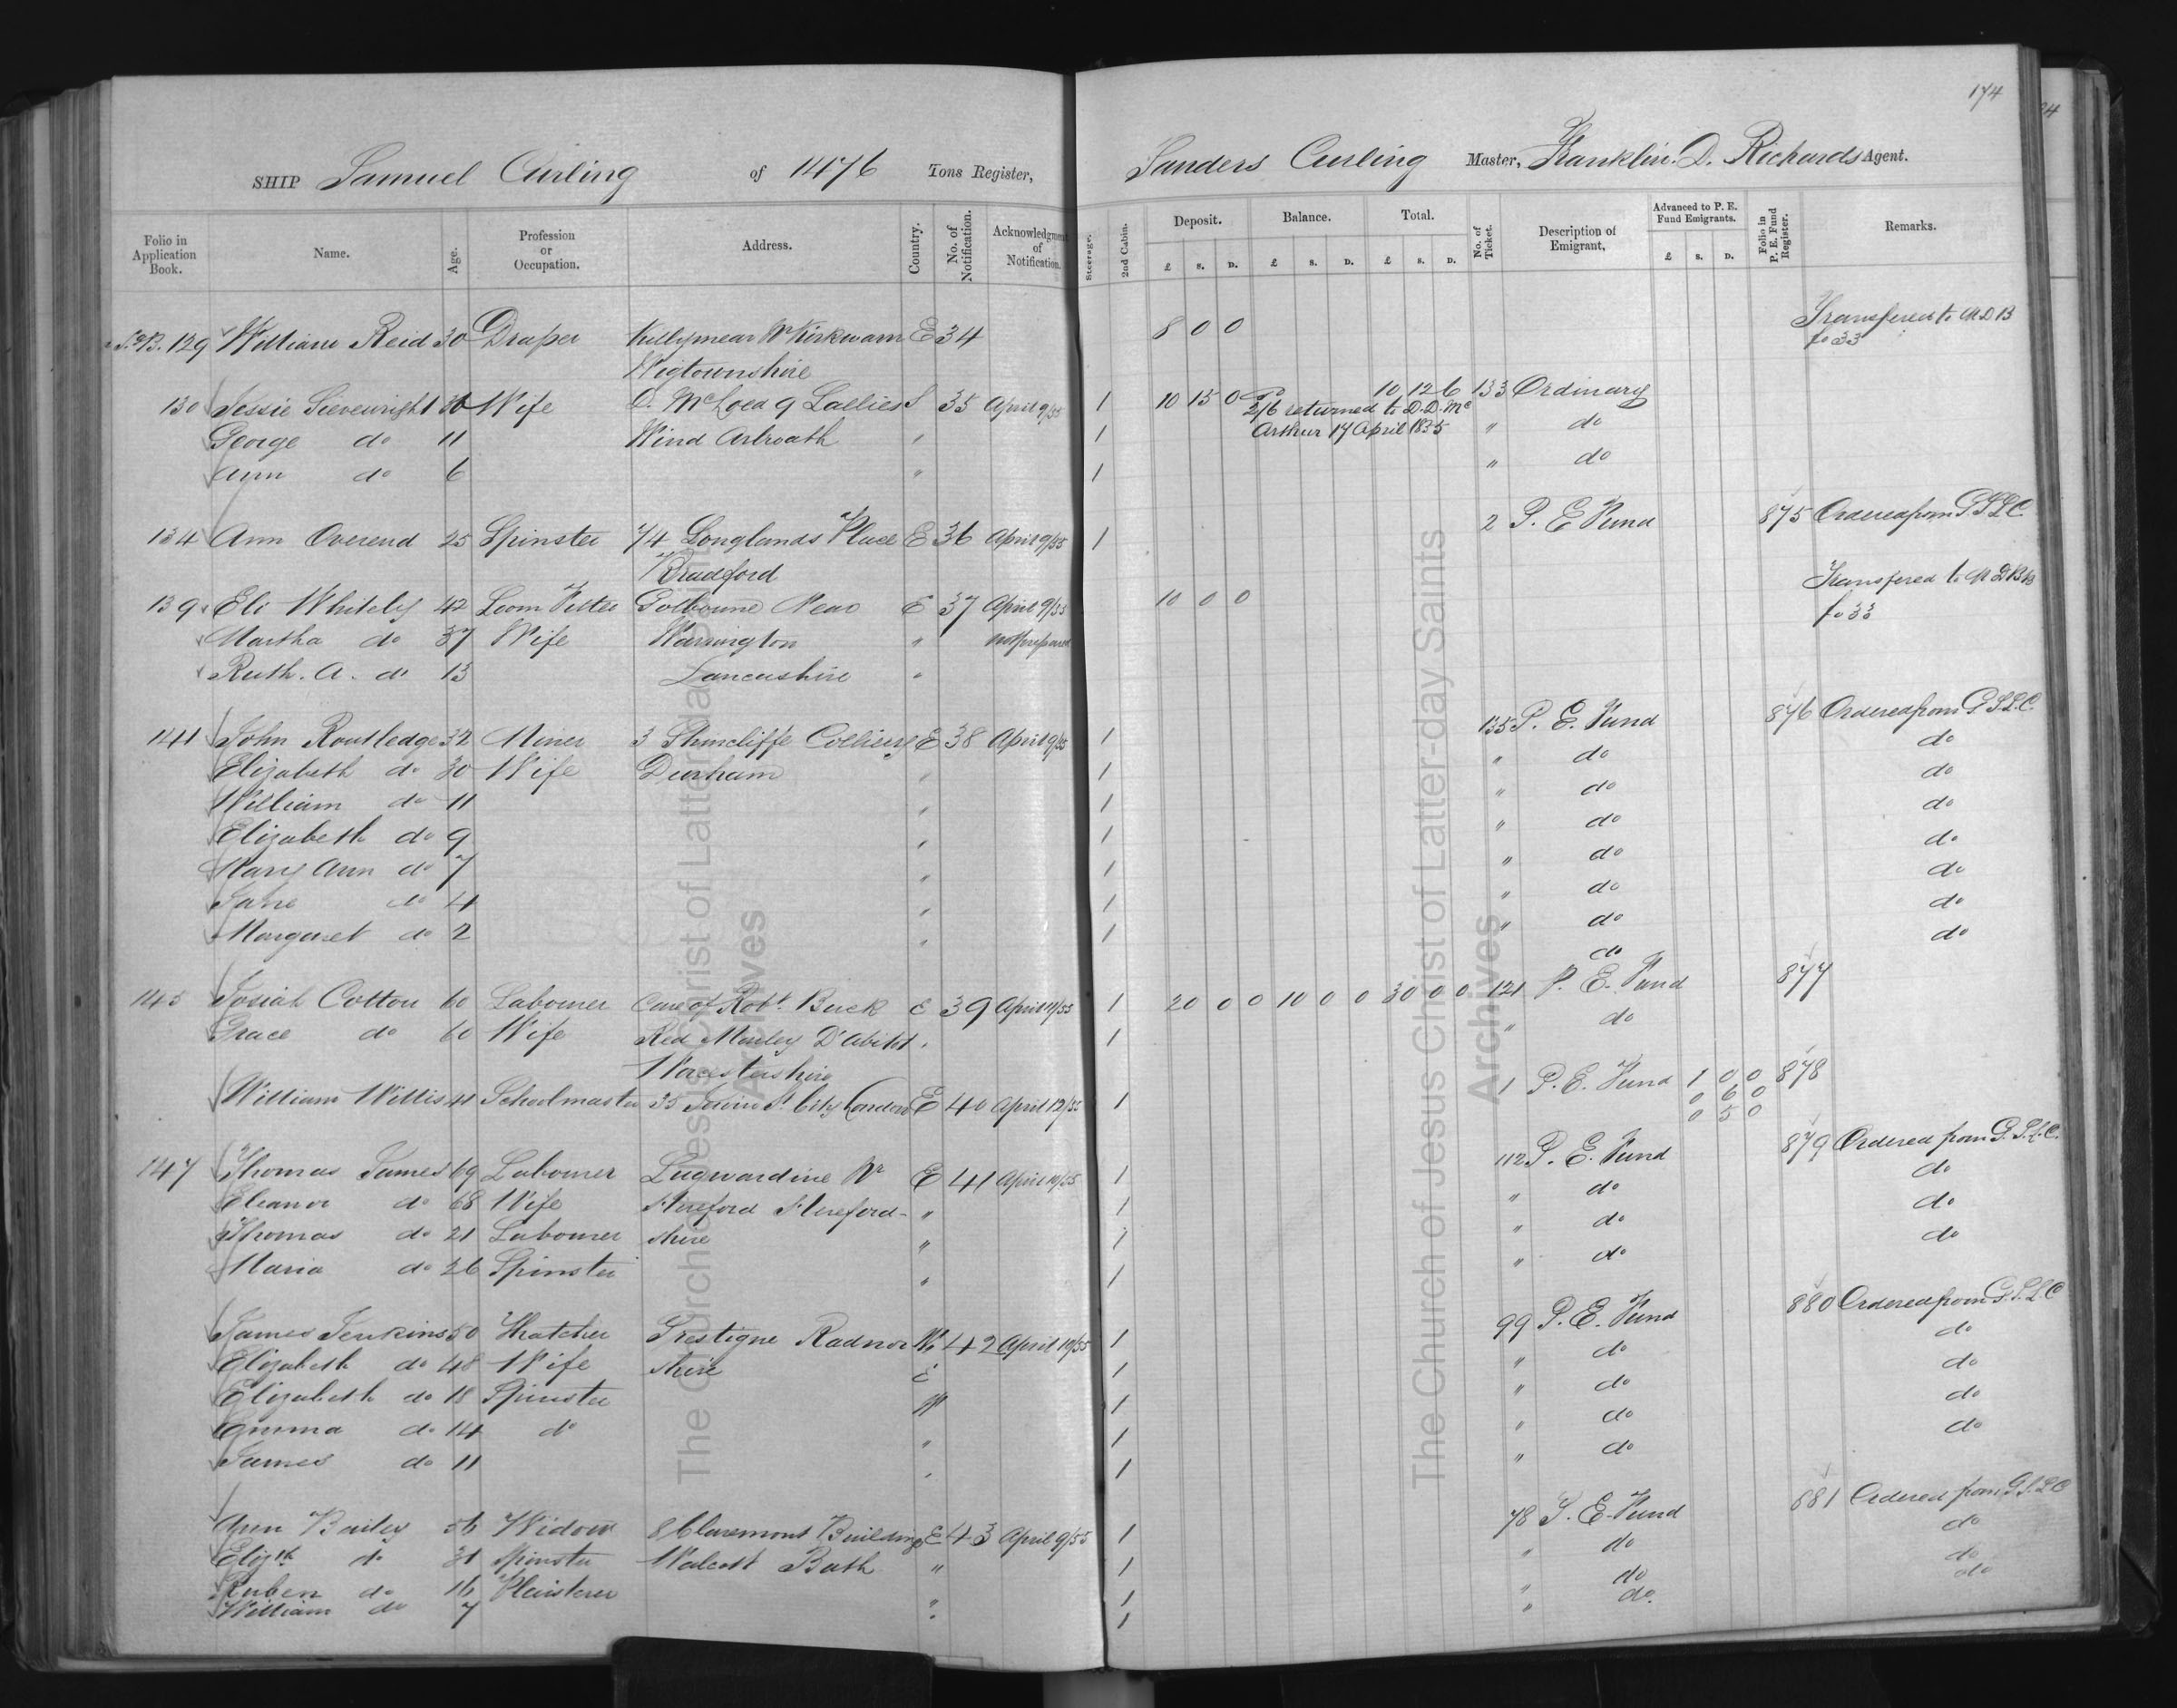 174
SHIP Samuel Curling of 1476 Tons Register, Sanders Curling Master, Franklin. D. Richards Agent.
Folio in Application Book. Name. Age. Profession or Occupation. Address. Country. No. of Notification. Acknowledgment of Notification. Steerage. 2nd Cabin. Deposit. £ s. D. Balance. £ s. D. Total. £ s. D. No. of Ticket. Description of Emigrant. Advanced to P. E. Fund Emigrants. £ s. D. Folio in P. E. Fund Register. Remarks.
129 William Reid 30 Draper Kirkwarn E 34 8 0 0 Transfered to M D B
Wigtownshire fo 33
130 Jessie Sievewright Wife D. McLoed 9 Lallies S 35 April 9/55 1 10 15 0 10 12 6 133 Ordinary
2/6 returned to D. D. Mc
George do 11 Wind Arbroath " 1 Arthur 17 April 1855 " do
Ann do 6 " 1 " do
134 Ann Overend 25 Spinster 74 Longlands Place E 36 April 9/55 1 2 P. E Fund 875 Ordered from G. S L C.
Bradford
139 Eli Whitely 42 Loom Golbourne Near E 37 April 9/55 10 0 0 Transfered to M D B
Martha do 37 Wife Warrington " not prepared fo 33
Ruth. A. do 13 Lancashire "
141 John Routledge 32 Miner 3 Shincliffe Colliery E 38 April 9/55 1 135 P. E. Fund 876 Ordered from G. S L C.
Elizabeth do 30 Wife Durham " 1 " do do
William do 11 " 1 " do do
Elizabeth do 9 " 1 " do do
Mary Ann do 7 " 1 " do do
Jane do 4 " 1 " do do
Margaret do 2 " 1 " do do
do
145 Josiah Cotton 60 Labourer Care of Robt. Buck E 39 April 10/55 1 20 0 0 10 0 0 30 0 0 121 P. E. Fund 877
Grace do 60 Wife Red Marley D'Abitot " 1 " do
Worcestershire
William Willis 41 Schoolmaster 35 St. City London E 40 April 12/55 1 1 P. E. Fund 1 0 0 878
0 6 0
0 5 0
147 Thomas James 69 Labourer Lugwardine Nr E 41 April 10/55 1 112 P. E. Fund 879 Ordered from G. S. L. C.
Eleanor do 68 Wife Hereford Hereford- " 1 " do do
Thomas do 21 Labourer shire " 1 " do do
Maria do 26 Spinster " 1 " do do
James Jenkins 50 Thatcher Prestigne Radnor W 42 April 10/55 1 99 P. E. Fund 880 Ordered from G. S. L. C
Elizabeth do 48 Wife shire E 1 " do do
Elizabeth do 18 Spinster W 1 " do do
Emma do 14 do " 1 " do do
James do 11 " 1 " do do
Ann Bailey 56 Widow 8 Claremont Buildings E 43 April 9/55 1 78 P. E. Fund 881 Ordered from G. S L C
Elizth do 31 Spinster Walcott Bath " 1 " do do
Ruben do 16 Plaisterer " 1 " do do
William do 7 " 1 " do. do
The Church of Jesus Christ of Latter-day Saints
Archives
The Church of Jesus Christ of Latter-day Saints
Archives